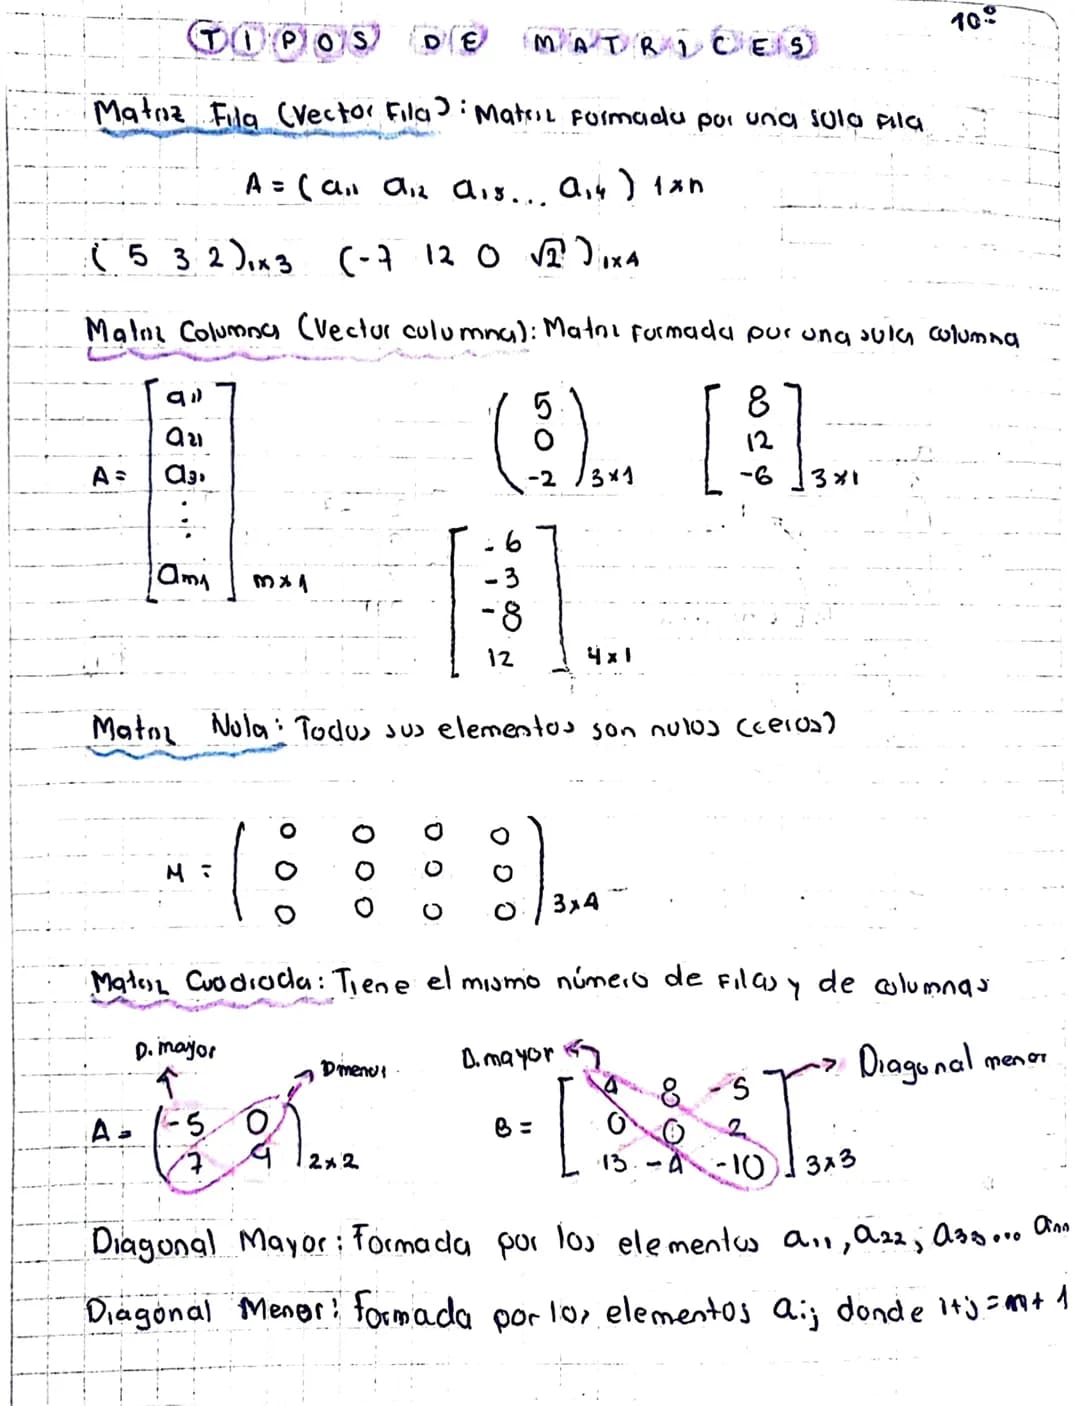 10º
TIPOS DE MATRICES
Matriz Fila (Vector Fila): Matriz Formada por una sola fila
A = ( a11 a12 a13... a14 ) 1xn
( 5 3 2 )1x3 (-7 12 0 √2 )1x4
Matriz Columna (Vector columna): Matriz Formada por una sola columna
A = [ a11 a21 a31 ⋮ am1 ] mx1
( 5 0 -2 )3x1 [ 8 12 -6 ]3x1
[ -6 -3 -8 12 ]4x1
Matriz Nula: Todos sus elementos son nulos (ceros)
M = ( 0 0 0 0
0 0 0 0
0 0 0 0 )3x4
Matriz Cuadrada: Tiene el mismo número de Filas y de columnas
D. mayor D menor D. mayor Diagonal menor
A = ( -5 0
7 9 )2x2
B = [ 4 8 -5
0 0 2
13 -4 -10 ]3x3
Diagonal Mayor: Formada por los elementos a11, a22, a33... ann
Diagonal Menor: formada por los elementos aij donde i+j = m+1